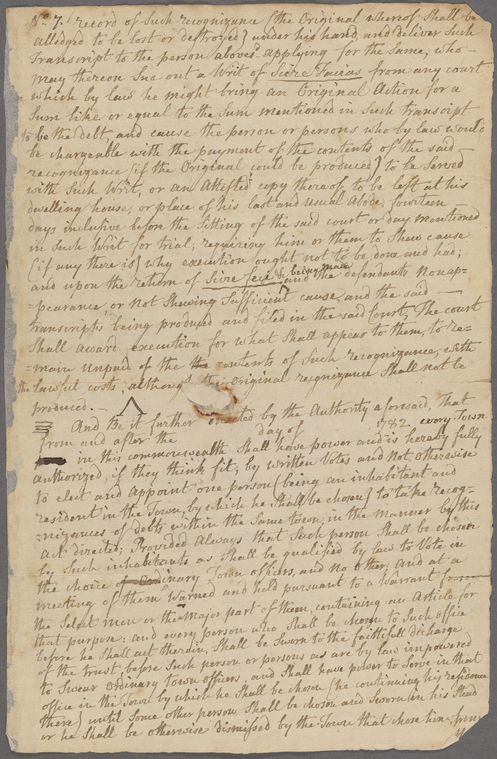 No. 7. record of Such recognizance [the Original whereof Shall be
alledged to be lost or destroyed] under his hand, and deliver Such
transcript to the person aboves.d applying for the Same, who
may thereon Sue out a Writ of Scire Facias from any court
in which by law he might bring an Original Action for a
Sum like or equal to the Sum mentioned in Such transcript
to be the debt, and cause the person or persons who by law would
be chargeable with the payment of the contents of the said
recognizance [if the Original could be produced] to be Served
with Such Writ, or an Attested copy thereof, to be left at his
dwelling house, or place of his last and usual Abode, fourteen
days inclusive before the Sitting of the said court or day mentioned
in Such Writ for trial, requiring him or them to Shew cause
[if any there is] why execution ought not to be done and had;
and upon the return of Scire feci being made and the defendants Nonap-
=pearance, or Not Shewing Sufficient cause, and the said
transcript's being produced and filed in the said Court, The court
Shall award execution for what Shall appear to them, to re-
=main unpaid of the the contents of Such recognizance, with
the lawful costs, although the original recognizance Shall not be
produced. -
And Be it further enacted by the Authority aforesaid, That
from and after the day of 1782 every Town
in this commonwealth Shall have power and is hereby fully
Authorized, if they think fit, by written Votes and Not otherwise
to elect and Appoint one person [being an inhabitant and
resident in the Town, by which he Shall be chosen] to take recog-
=nizances of debts within the Same town, in the manner by this
Act directed; Provided Always that Such person Shall be chosen
by Such inhabitants as Shall be qualified by law to Vote in
the choice of Ordinary Town officers, and no other, and at a
meeting of them Warned and held pursuant to a Warrant from
the Select men or the Major part of them, containing an Article for
that purpose: and every person who Shall be chosen to Such office
before he Shall act therein, Shall be Sworn to the faithfull discharge
of the trust before Such person or persons as are by law impowered
to Swear Ordinary town officers, and Shall have power to Serve in that
office in the Town by which he Shall be chosen [he continuing his residence
there] until Some other person Shall be chosen and Sworn in his Stead
or he Shall be otherwise dismissed by the Town that chose him.